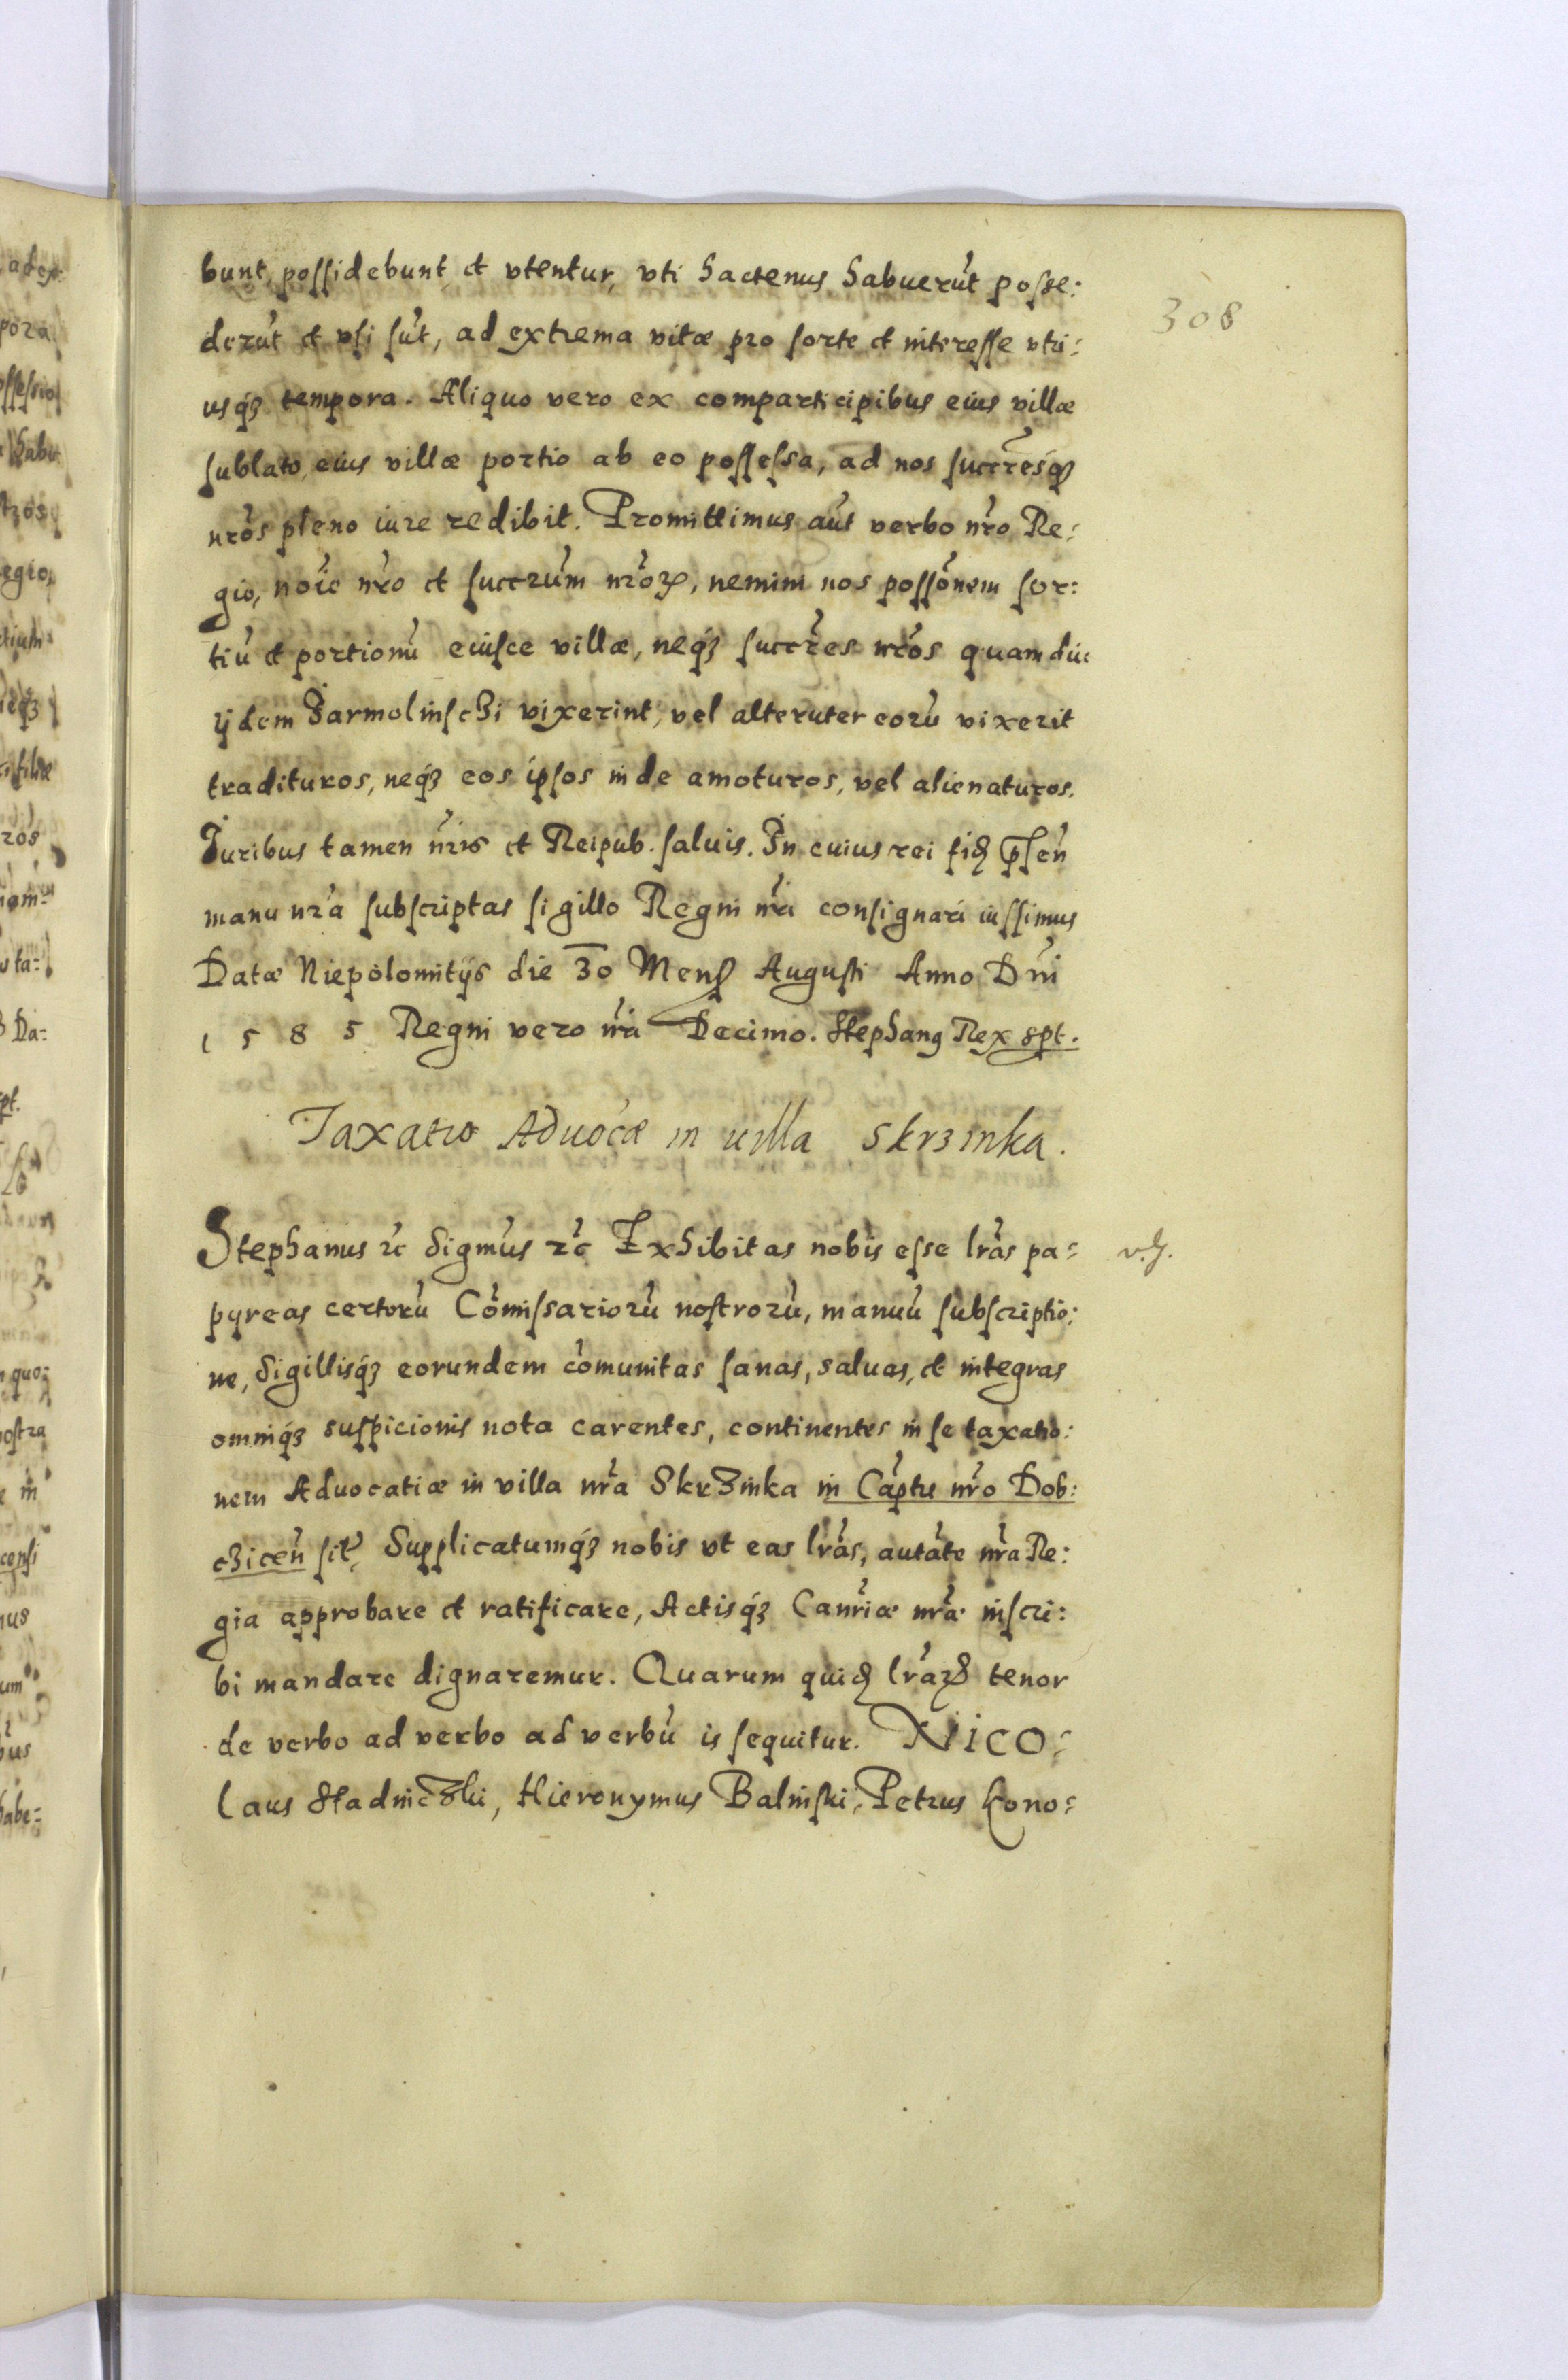 308
bunt, possidebunt et vtentur, vti hactenus habuerūt posse:
derūt et vsi sūt, ad extrema vitæ pro sorte et interesse vtri:
usq́ȝ tempora. Aliquo vero ex comparticipibus eius villæ
sublato, eius villæ portio ab eo possessa, ad nos succrēsq́ȝ
nrōs pleno iure redibit. Promittimus aūt verbo nrō Re:
gio, noīe nrō et succrūm nrōꝝ, nemini nos possōnem sor:
tiū et portionū eiusce villæ, neq́ȝ succrēs nrōs quamdiu
ijdem Jarmolinschi vixerint, vel alteruter eorū vixerit
tradituros, neq́ȝ eos ipsos inde amoturos, vel alienaturos.
Juribus tamen nrīs et Reipub. saluis. In cuius rei fidꝫ p̄sen̄
manu nrā subscriptas sigillo Regni nrī consignari iussimus
Datæ Niepolomitijs die 30 Mens Augusti Anno Dnī
1585 Regni vero nrī Decimo. Stephanꝰ Rex spt.
Taxatio Aduocæ in uilla Skrzinka.
Stephanus ꝛc Sigmūs ꝛc Exhibitas nobis esse lrās pa:
v.s.
pyreas certorū Cōmissariorū nostrorū, manuū subscriptio:
ne, Sigillisq́ȝ eorundem cōmunitas sanas, saluas, et integras
omniq́ȝ suspicionis nota carentes, continentes in se taxatio:
nem Aduocatiæ in villa nrā Skrzinka in Cāptu nrō Dob:
czicen̄ sit, Supplicatumq́ȝ nobis vt eas lrās, autāte nrā Re:
gia approbare et ratificare, Actisq́ȝ Canrīæ nrǣ inscri:
bi mandare dignaremur. Quarum quidꝫ lrāꝝ tenor
de verbo ad verbo ad verbū is sequitur. NICO:
laus Stadniczki, Hieronymus Balinski, Petrus Kono: